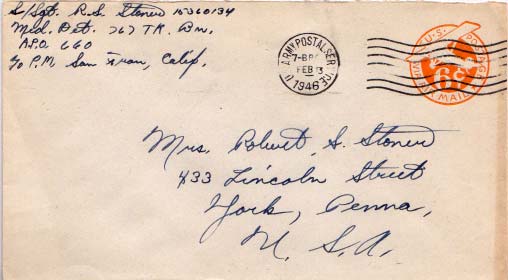 S/Sgt. R.S. Stoner 15360134
Med. Det. 767 TK. Bn.
A.P.O. 660
c/o P.M. San Fran, Calif.
ARMY POSTAL SERVICE
FEB 3
1946
U.S. POSTAGE
6¢
AIR MAIL
Mrs. Robert S. Stoner
833 Lincoln Street
York, Penna,
U. S. A.